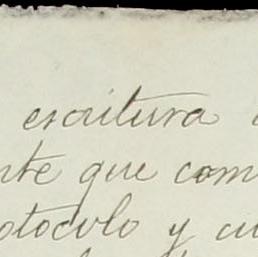 escritura
nte que com
otocolo y cu